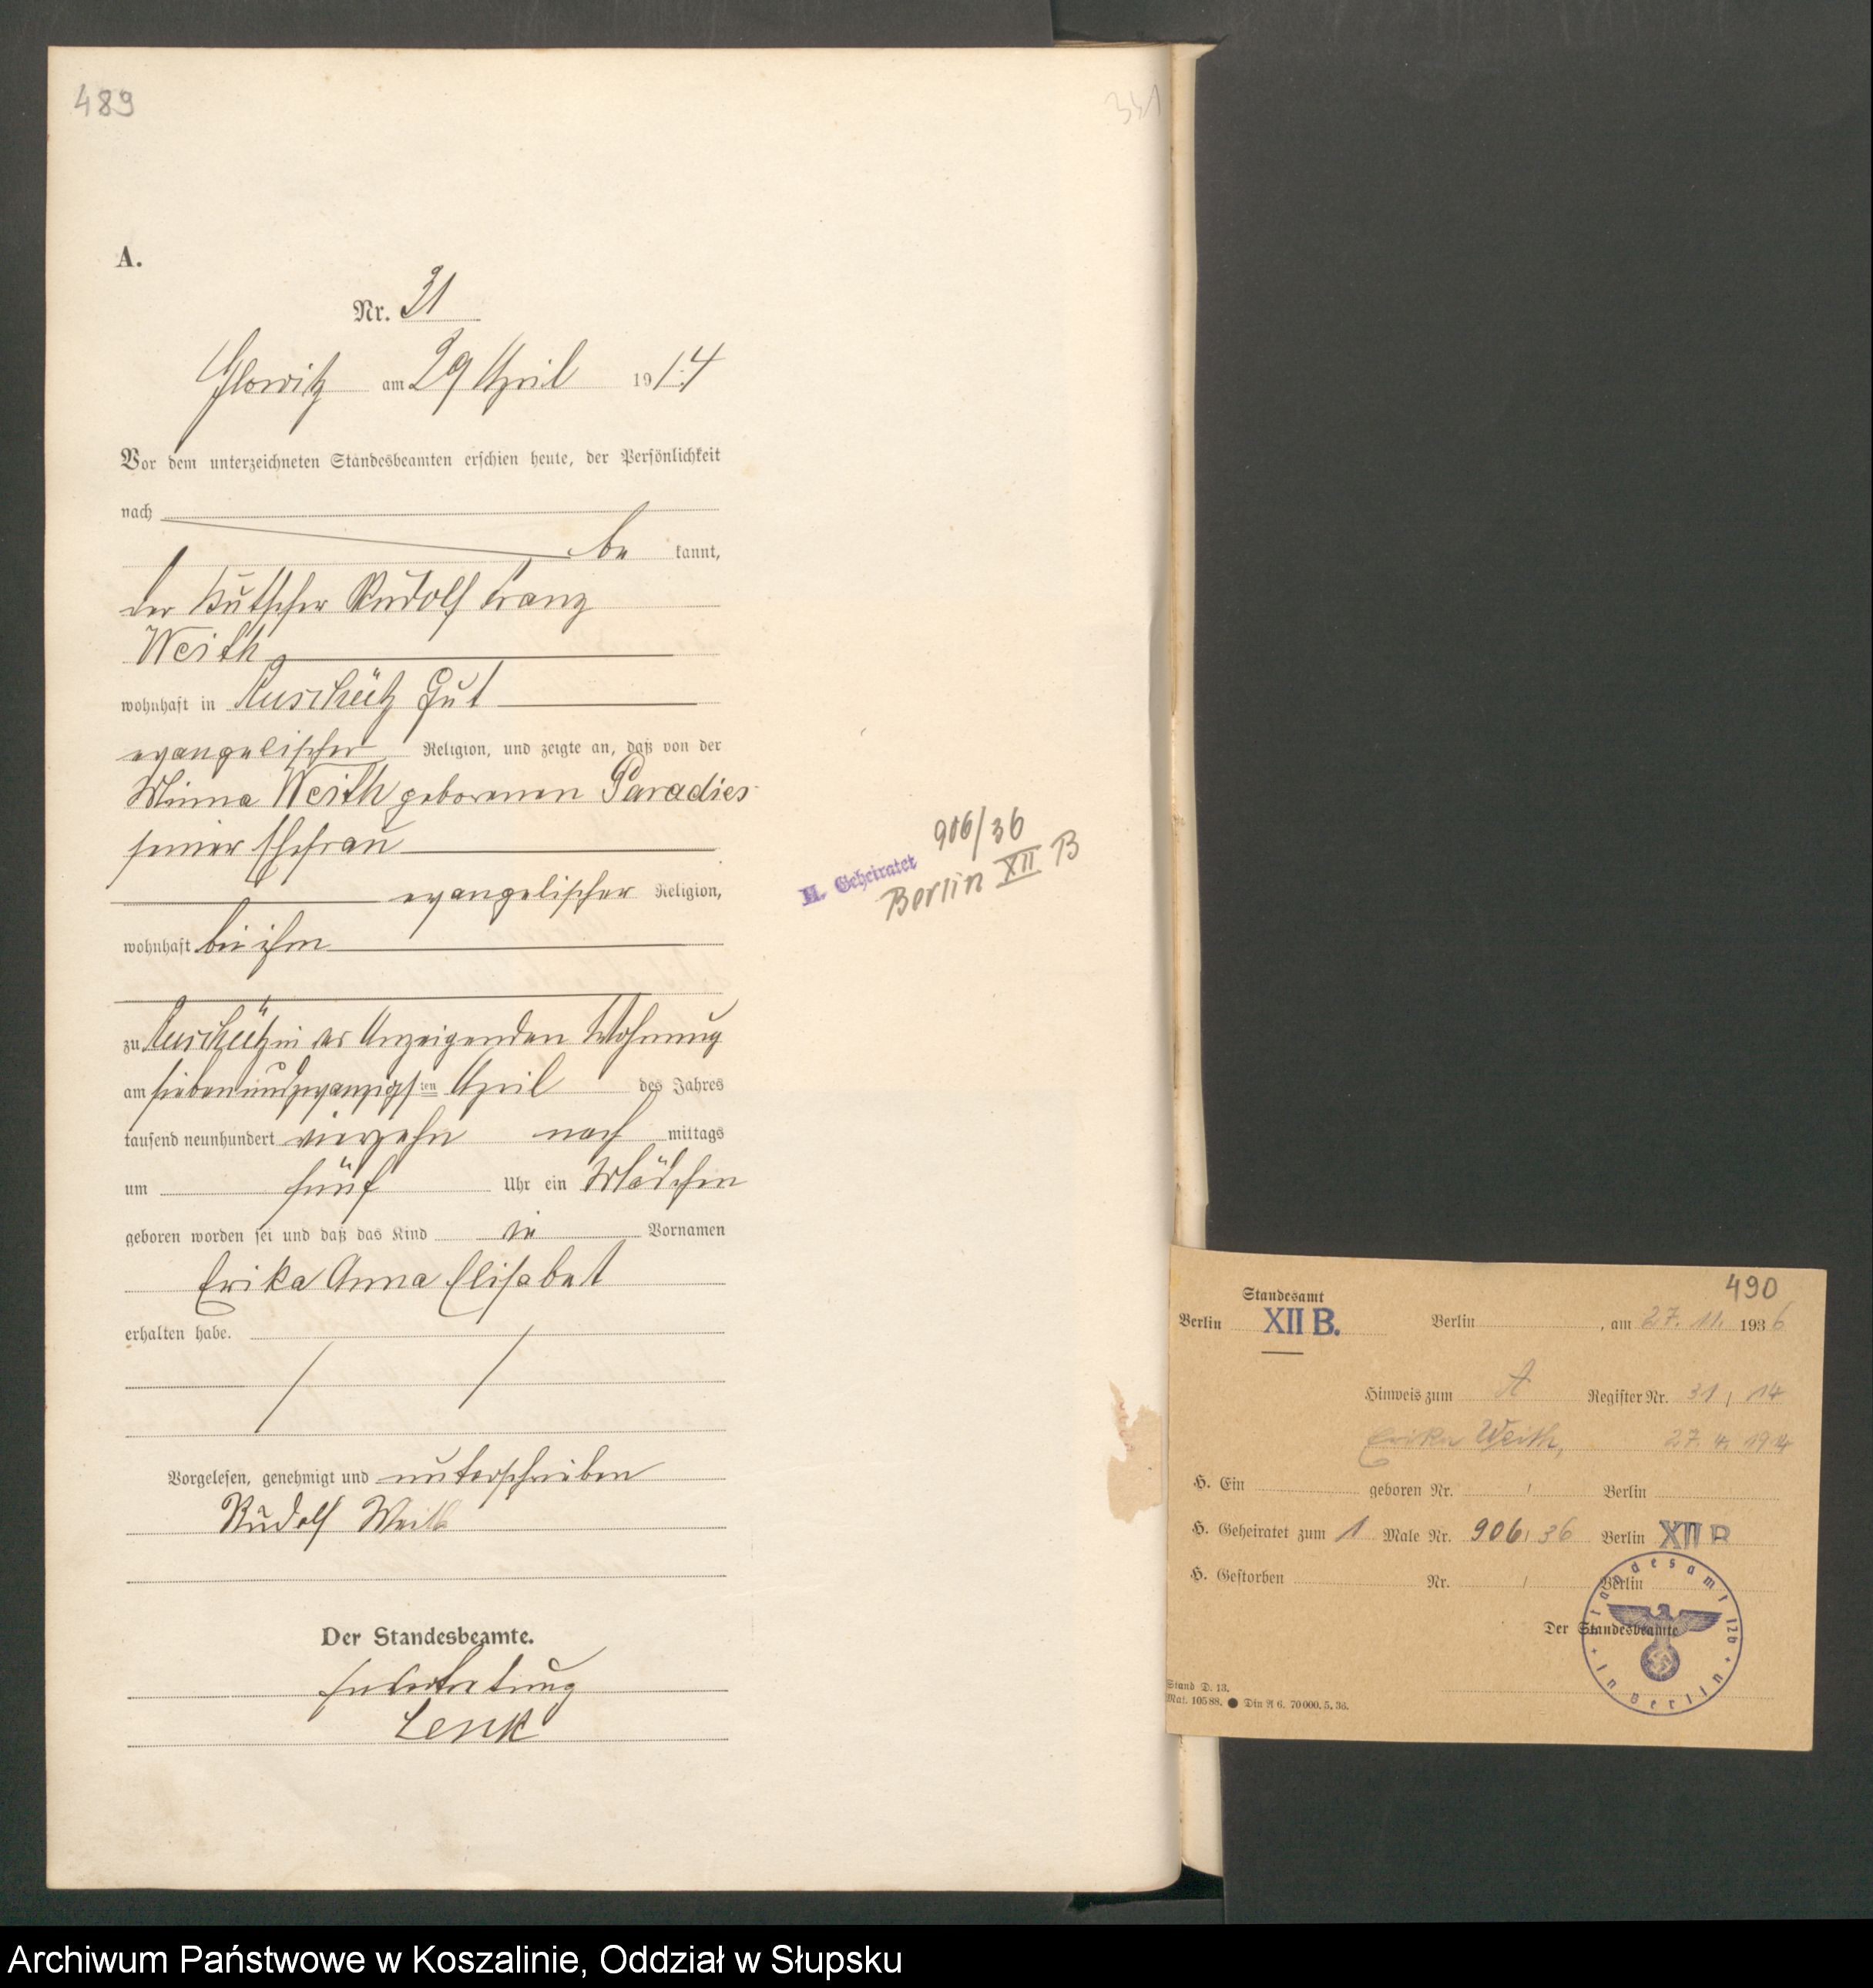 489
341
A.
Nr. 31
Glowitz am 29 April 1914
Vor dem unterzeichneten Standesbeamten erschien heute, der Persönlichkeit
nach
be kannt,
der Kutscher Rudolf Franz
Weith
wohnhaft in Ruschütz Gut
evangelischer Religion, und zeigte an, daß von der
Minna Weith geborenen Paradies
seiner Ehefrau
evangelischer Religion,
wohnhaft bei ihm
zu Ruschütz in des Anzeigenden Wohnung
am siebenundzwanzigsten April des Jahres
tausend neunhundert vierzehn nach mittags
um fünf Uhr ein Mädchen
geboren worden sei und daß das Kind die Vornamen
Erika Anna Elisabet
erhalten habe.
Vorgelesen, genehmigt und unterschrieben
Rudolf Weith
Der Standesbeamte.
In Vertretung
Lenk
H. Geheiratet 906/36
Berlin XII B
490
Standesamt
Berlin XII B. Berlin , am 27. 11. 1936
Hinweis zum A Register Nr. 31 / 14
Erika Weith, 27. 4. 1914
H. Ein geboren Nr. / Berlin
H. Geheiratet zum 1 Male Nr. 906/ 36 Berlin XII B
H. Gestorben Nr. / Berlin
Der Standesbeamte
Standesamt 12b in Berlin
Stand D. 13.
Mat. 10588. ● Din A 6. 70000. 5. 36.
Archiwum Państwowe w Koszalinie, Oddział w Słupsku